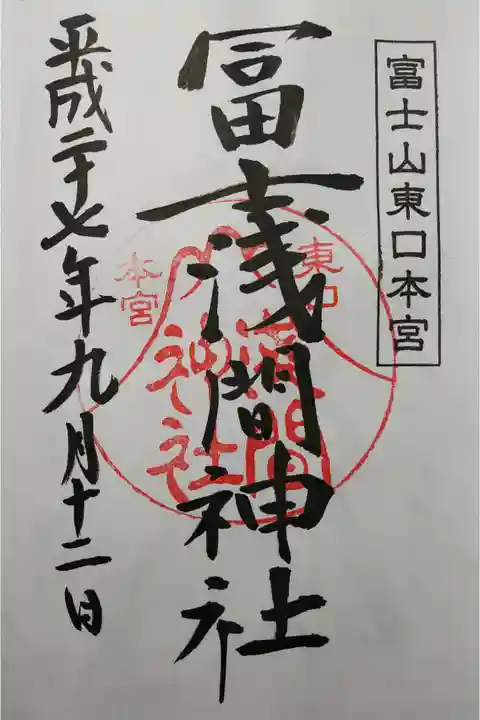 富士山東口本宮
冨士浅間神社
東口
本宮
浅間
神社
平成二十七年九月十二日